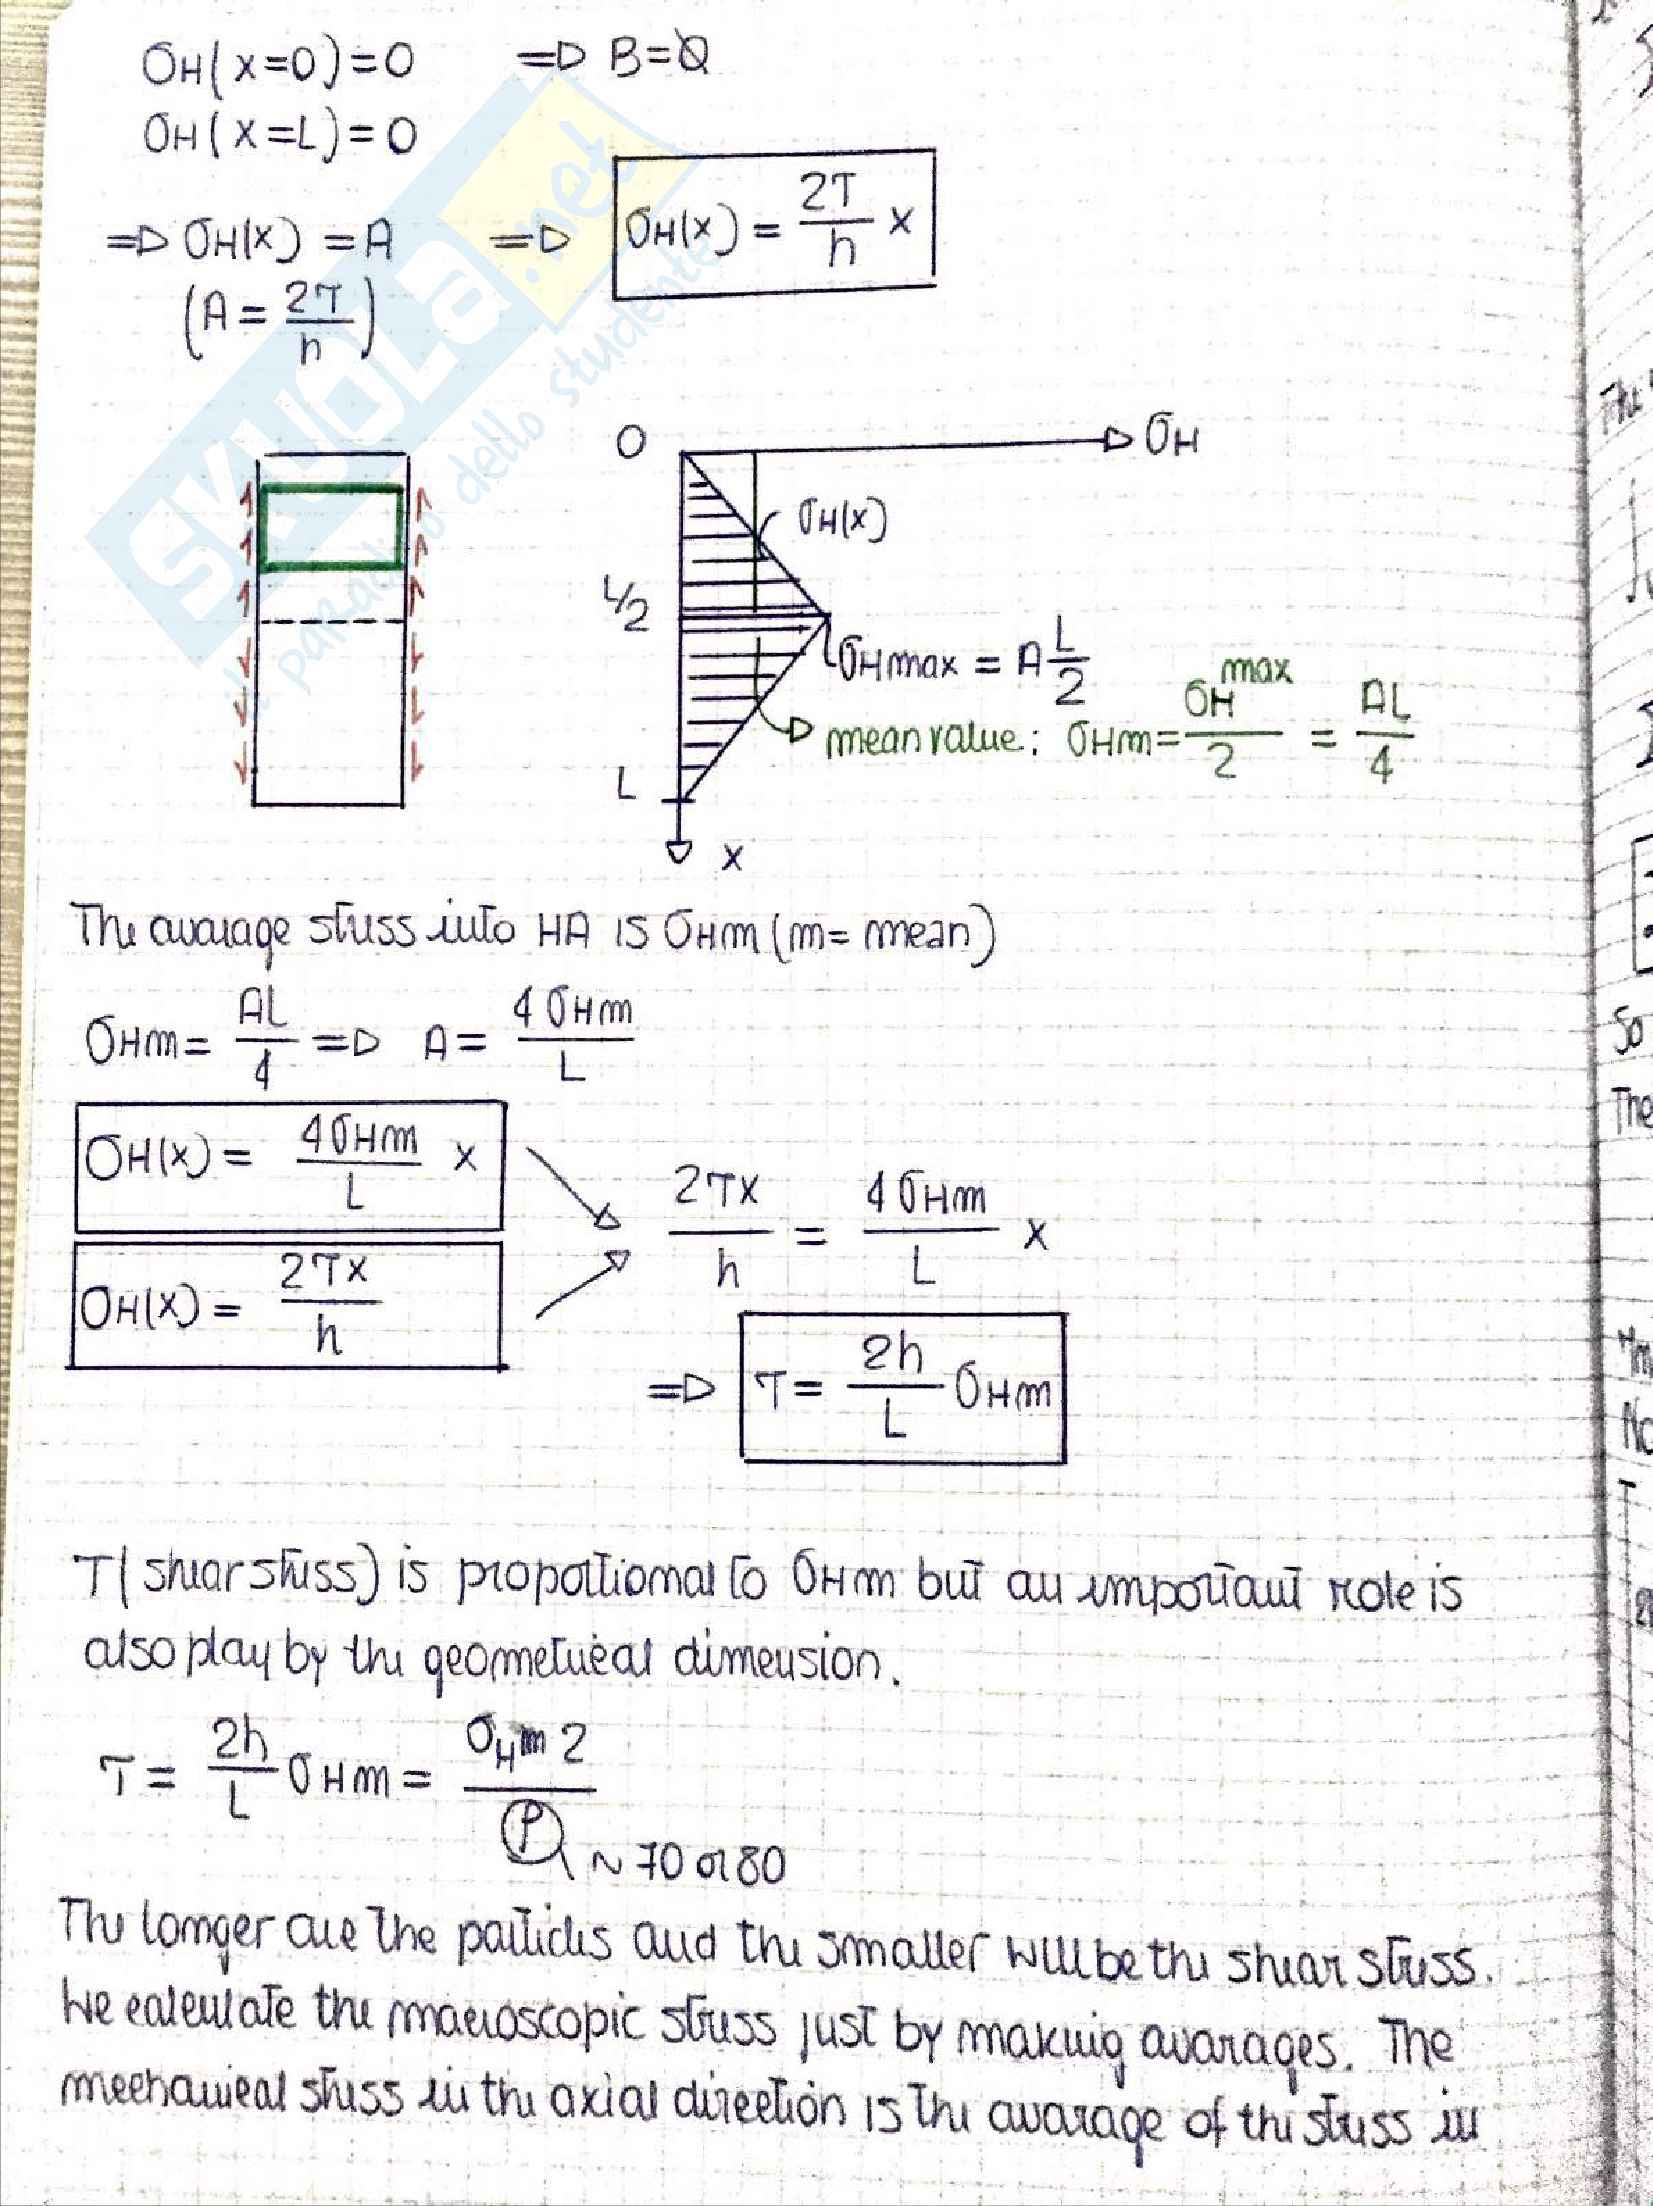 σH(x=0)=0 ⇒ B=0
σH(x=L)=0
⇒ σH(x) = A ⇒ σH(x) = 2τ/h x
(A = 2τ/h)
0 σH
σH(x)
L/2
σHmax = A L/2
mean value: σHm = σH^max/2 = AL/4
L
x
The avarage stress into HA is σHm (m= mean)
σHm = AL/4 ⇒ A = 4σHm/L
σH(x) = 4σHm/L x
2τx/h = 4σHm/L x
σH(x) = 2τx/h
⇒ τ = 2h/L σHm
τ (shear stress) is proportional to σHm but an important role is
also play by the geometrical dimension.
τ = 2h/L σHm = σHm 2/ρ ~ 70 or 80
The longer are the particles and the smaller will be the shear stress.
We calculate the macroscopic stress just by making avarages. The
mechanical stress in the axial direction is the avarage of the stress in
SKUOLA.net
il paradiso dello studente
So
The